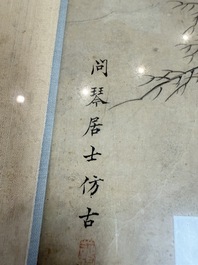 問琴居士仿古